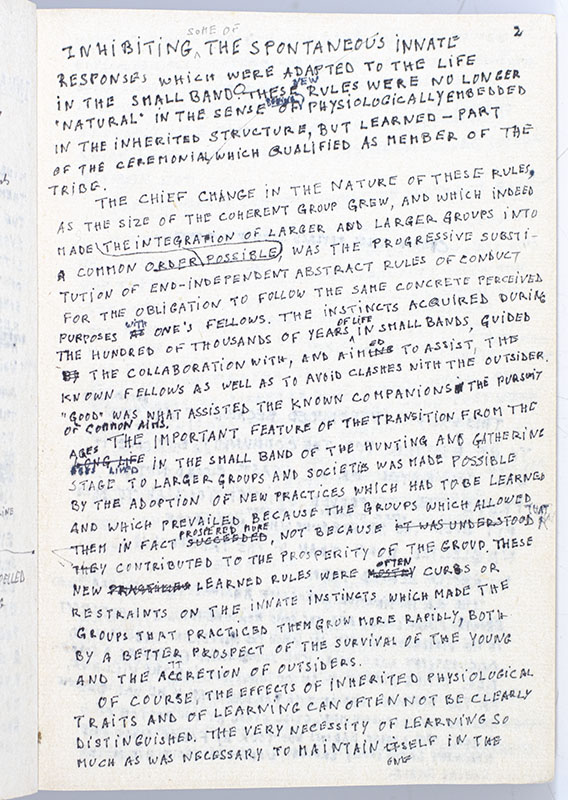 2
SOME OF
INHIBITING THE SPONTANEOUS INNATE
RESPONSES WHICH WERE ADAPTED TO THE LIFE
IN THE SMALL BAND. THESE NEW RULES WERE NO LONGER
"NATURAL" IN THE SENSE OF PHYSIOLOGICALLY EMBEDDED
IN THE INHERITED STRUCTURE, BUT LEARNED – PART
OF THE CEREMONIAL, WHICH QUALIFIED AS MEMBER OF THE
TRIBE.
THE CHIEF CHANGE IN THE NATURE OF THESE RULES,
AS THE SIZE OF THE COHERENT GROUP GREW, AND WHICH INDEED
MADE THE INTEGRATION OF LARGER AND LARGER GROUPS INTO
A COMMON ORDER POSSIBLE, WAS THE PROGRESSIVE SUBSTI-
TUTION OF END-INDEPENDENT ABSTRACT RULES OF CONDUCT
FOR THE OBLIGATION TO FOLLOW THE SAME CONCRETE PERCEIVED
PURPOSES AS WITH ONE'S FELLOWS. THE INSTINCTS ACQUIRED DURING
THE HUNDRED OF THOUSANDS OF YEARS OF LIFE IN SMALL BANDS, GUIDED
THE COLLABORATION WITH, AND AIMED TO ASSIST, THE
KNOWN FELLOWS AS WELL AS TO AVOID CLASHES WITH THE OUTSIDER.
"GOOD" WAS WHAT ASSISTED THE KNOWN COMPANIONS THE PURSUIT
OF COMMON AIMS.
THE IMPORTANT FEATURE OF THE TRANSITION FROM THE
AGES LONG LIFE IN THE SMALL BAND OF THE HUNTING AND GATHERING
STAGE TO LARGER GROUPS AND SOCIETIES WAS MADE POSSIBLE
BY THE ADOPTION OF NEW PRACTICES WHICH HAD TO BE LEARNED
AND WHICH PREVAILED, BECAUSE THE GROUPS WHICH ALLOWED
THEM IN FACT SUCCEEDED PROSPERED MORE, NOT BECAUSE IT WAS UNDERSTOOD THAT
THEY CONTRIBUTED TO THE PROSPERITY OF THE GROUP. THESE
NEW PRACTISES LEARNED RULES WERE MOSTLY OFTEN CURBS OR
RESTRAINTS ON THE INNATE INSTINCTS WHICH MADE THE
GROUPS THAT PRACTICED THEM GROW MORE RAPIDLY, BOTH
BY A BETTER PROSPECT OF THE SURVIVAL OF THE YOUNG
AND THE ACCRETION OF OUTSIDERS.
OF COURSE, THE EFFECTS OF INHERITED PHYSIOLOGICAL
TRAITS AND OF LEARNING CAN OFTEN NOT BE CLEARLY
DISTINGUISHED. THE VERY NECESSITY OF LEARNING SO
MUCH AS WAS NECESSARY TO MAINTAIN ITSELF IN THE
ONE